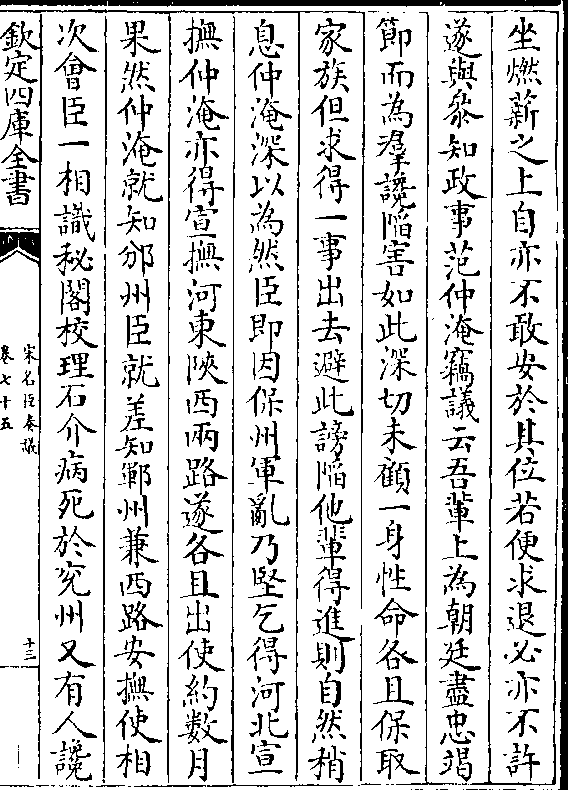 坐燃薪之上自亦不敢安於其位若便求退必亦不許
遂與叅知政事范仲淹竊議云吾輩上為朝廷盡忠竭
節而為羣讒陷害如此深切未顧一身性命各且保取
家族但求得一事出去避此謗陷他輩得進則自然稍
息仲淹深以為然臣即因保州軍亂乃堅乞得河北宣
撫仲淹亦得宣撫河東陜西兩路遂各且出使約數月
果然仲淹就知邠州臣就差知鄆州兼西路安撫使相
次會臣一相識秘閣校理石介病死於兖州又有人讒
欽定四庫全書
宋名臣奏議
卷七十五
十三